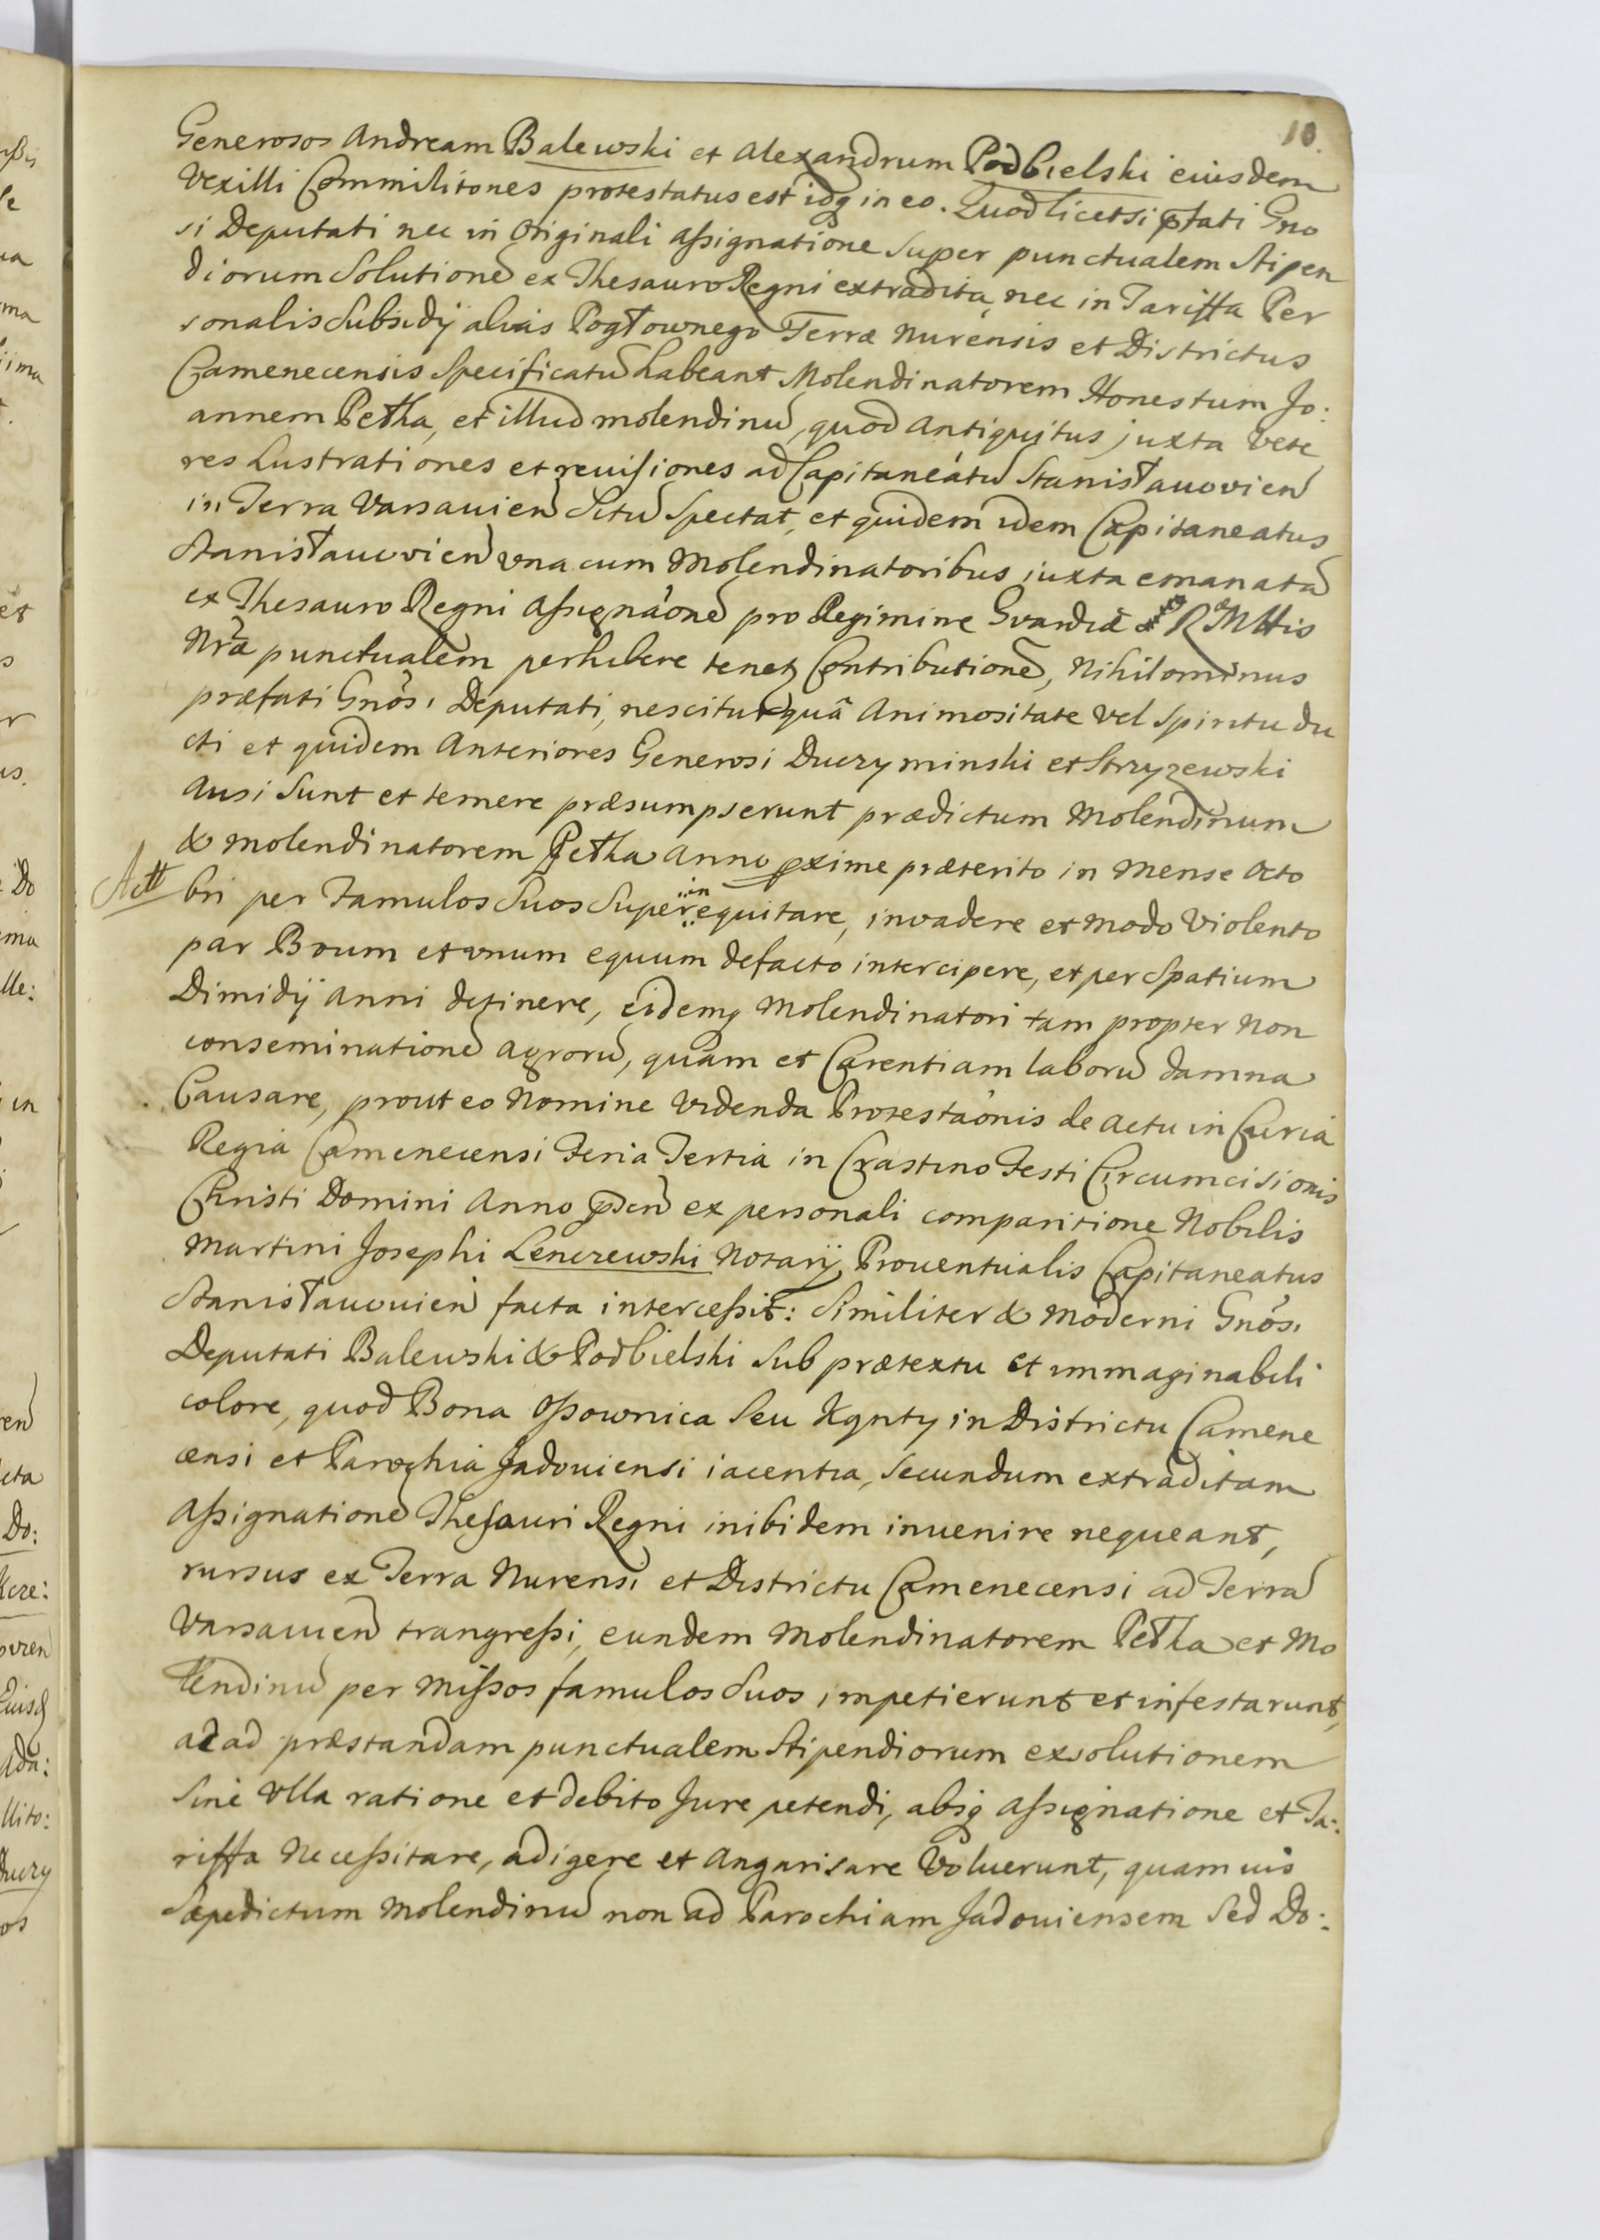 10.
Generosos Andream Balewski et Alexandrum Podbielski eiusdem
Vexilli Commilitones protestatus est idq in eo. Quod licetsi pfati Gno
si Deputati nec in Originali Assignatione super punctualem Stipen
diorum Solutione ex Thesauro Regni extradita, nec in Tariffa Per
sonalis Subsidij alias Pogłownego Terræ Nurensis et Districtus
Camenecensis Specificatu habeant Molendinatorem Honestum Jo:
annem Petka, et illud molendinu, quod Antiquitus juxta Vete
res Lustrationes et reuisiones ad Capitaneatu Stanisławovien
in Terra Varsauien Situ Spectat, et quidem idem Capitaneatus
Stanisławovien vna cum Molendinatoribus juxta emanata
ex Thesauro Regni Assignaone pro Regimine Gvardiæ RMttis
Nræ punctualem perhibere tenetq Contributione, Nihilominus
præfati Gnosi Deputati, nescitur quâ Animositate vel Spiritu du
cti et quidem Anteriores Generosi Duczyminski et Strzyzewski
Ausi Sunt et temere præsumpserunt prædictum Molendinum
& molendinatorem Petka Anno pxime præterito in Mense Octo
Actt
bri per Famulos Suos Superinequitare, invadere et Modo Violento
par Boum et vnum equum defacto intercipere, et per Spatium
Dimidij Anni detinere, eidemq Molendinatori tam propter Non
conseminatione Agroru, quam et Carentiam laboru damna
Causare, prout eo Nomine Videnda Protestaonis de Actu in Curia
Regia Camenecensi Feria Tertia in Crastino Festi Circumcisionis
Christi Domini Anno pden ex personali comparitione Nobilis
Martini Josephi Lenczewski Notarij Prouentualis Capitaneatus
Stanisławouien facta intercessit: Similiter & Moderni Gnosi
Deputati Balewski & Podbielski Sub prætextu et immaginabili
colore, quod Bona Ossownica Seu Kąnty in Districtu Camene
censi et Parochia Jadouiensi iacentia, Secundum extraditam
Assignatione Thesauri Regni inibidem inuenire nequeant,
rursus ex Terra Nurensi et Districtu Camenecensi ad Terra
Varsauien trangressi, eundem Molendinatorem Petka et Mo
lendinu per Missos famulos Suos impetierunt et infestarunt,
ac ad præstandam punctualem Stipendiorum exsolutionem
Sine Vlla ratione et debito Jure petendi, absq Assignatione et Ta:
riffa Necessitare, adigere et Angarisare Voluerunt, quamuis
Sæpedictum Molendinu non ad Parochiam Jadouiensem Sed Do: